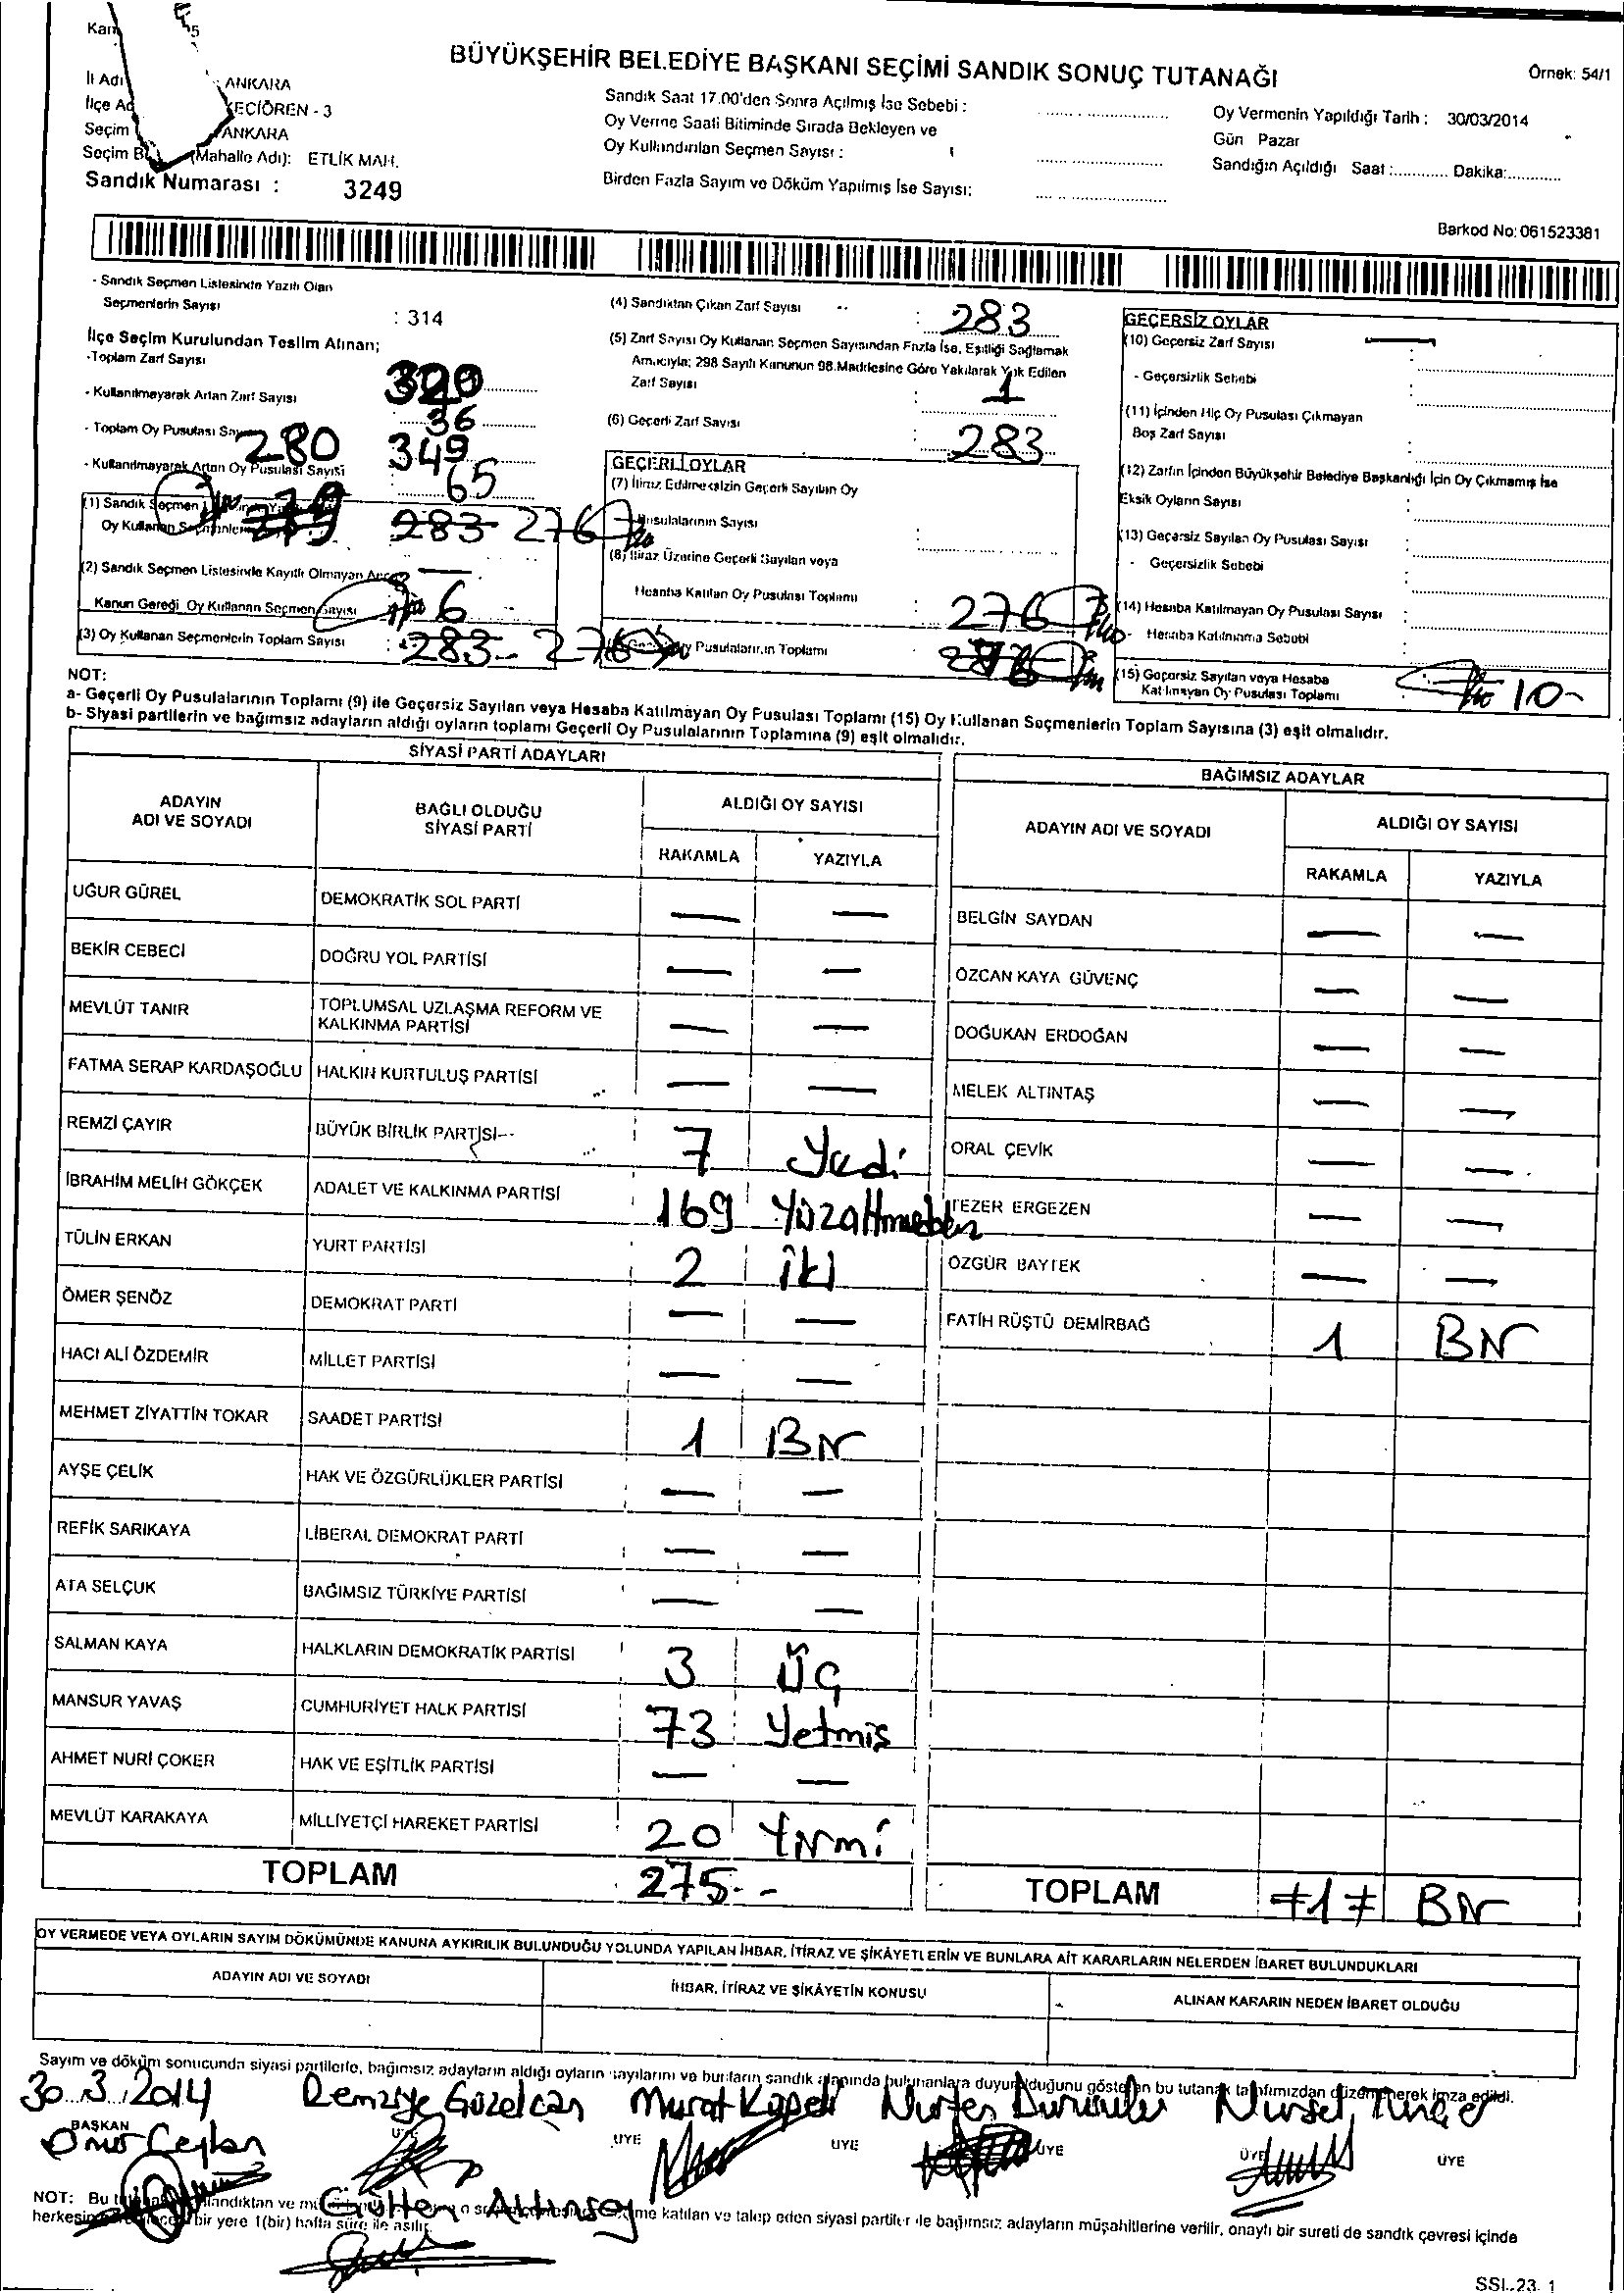 BÜYÜKŞEHİR BELEDİYE BAŞKANI SEÇİMİ SANDIK SONUÇ TUTANAĞI
Örnek: 54/1
İl Adı ANKARA
İlçe KEÇİÖREN - 3
Seçim ANKARA
Seçim (Mahalle Adı): ETLİK MAH.
Sandık Numarası : 3249
Sandık Saat 17.00'den Sonra Açılmış İse Sebebi :
Oy Verme Saati Bitiminde Sırada Bekleyen ve
Oy Kullandırılan Seçmen Sayısı :
Birden Fazla Sayım ve Döküm Yapılmış İse Sayısı:
Oy Vermenin Yapıldığı Tarih : 30/03/2014
Gün Pazar
Sandığın Açıldığı Saat :............ Dakika:............
Barkod No: 061523381
- Sandık Seçmen Listesinde Yazılı Olan
Seçmenlerin Sayısı : 314
İlçe Seçim Kurulundan Teslim Alınan;
-Toplam Zarf Sayısı 320
- Kullanılmayarak Artan Zarf Sayısı 36
- Toplam Oy Pusulası 280 349
- Kullanılmayarak Artan Oy Pusulası Sayısı 65
(1) Sandık Seçmen
Oy Kullanan 283-276
(2) Sandık Seçmen Listesinde Kayıtlı Olmayan
Kanun Gereği Oy Kullanan Seçmen Sayısı 6
(3) Oy Kullanan Seçmenlerin Toplam Sayısı : 283-276
(4) Sandıktan Çıkan Zarf Sayısı : 283
(5) Zarf Sayısı Oy Kullanan Seçmen Sayısından Fazla İse, Eşitliği Sağlamak
Amacıyla; 298 Sayılı Kanunun 98.Maddesine Göre Yakılarak Yok Edilen
Zarf Sayısı : 1
(6) Geçerli Zarf Sayısı : 283
GEÇERLİ OYLAR
(7) İtiraz Edilmeksizin Geçerli Sayılan Oy
Pusulalarının Sayısı
(8) İtiraz Üzerine Geçerli Sayılan veya
Hesaba Katılan Oy Pusulası Toplamı 276
Pusulalarının Toplamı
GEÇERSİZ OYLAR
(10) Geçersiz Zarf Sayısı
- Geçersizlik Sebebi
(11) İçinden Hiç Oy Pusulası Çıkmayan
Boş Zarf Sayısı
(12) Zarfın İçinden Büyükşehir Belediye Başkanlığı İçin Oy Çıkmamış İse
Eksik Oyların Sayısı
(13) Geçersiz Sayılan Oy Pusulası Sayısı
- Geçersizlik Sebebi
(14) Hesaba Katılmayan Oy Pusulası Sayısı
- Hesaba Katılmama Sebebi
(15) Geçersiz Sayılan veya Hesaba
Katılmayan Oy Pusulası Toplamı 10-
NOT:
a- Geçerli Oy Pusulalarının Toplamı (9) ile Geçersiz Sayılan veya Hesaba Katılmayan Oy Pusulası Toplamı (15) Oy Kullanan Seçmenlerin Toplam Sayısına (3) eşit olmalıdır.
b- Siyasi partilerin ve bağımsız adayların aldığı oyların toplamı Geçerli Oy Pusulalarının Toplamına (9) eşit olmalıdır.
SİYASİ PARTİ ADAYLARI
ADAYIN ADI VE SOYADI
BAĞLI OLDUĞU SİYASİ PARTİ
ALDIĞI OY SAYISI
RAKAMLA YAZIYLA
UĞUR GÜREL DEMOKRATİK SOL PARTİ — —
BEKİR CEBECİ DOĞRU YOL PARTİSİ — —
MEVLÜT TANIR TOPLUMSAL UZLAŞMA REFORM VE KALKINMA PARTİSİ — —
FATMA SERAP KARDAŞOĞLU HALKIN KURTULUŞ PARTİSİ — —
REMZİ ÇAYIR BÜYÜK BİRLİK PARTİSİ 7 Yedi
İBRAHİM MELİH GÖKÇEK ADALET VE KALKINMA PARTİSİ 169
TÜLİN ERKAN YURT PARTİSİ 2 iki
ÖMER ŞENÖZ DEMOKRAT PARTİ — —
HACI ALİ ÖZDEMİR MİLLET PARTİSİ — —
MEHMET ZİYATTİN TOKAR SAADET PARTİSİ 1 Bir
AYŞE ÇELİK HAK VE ÖZGÜRLÜKLER PARTİSİ — —
REFİK SARIKAYA LİBERAL DEMOKRAT PARTİ — —
ATA SELÇUK BAĞIMSIZ TÜRKİYE PARTİSİ — —
SALMAN KAYA HALKLARIN DEMOKRATİK PARTİSİ 3 Üç
MANSUR YAVAŞ CUMHURİYET HALK PARTİSİ 73 Yetmiş
AHMET NURİ ÇOKER HAK VE EŞİTLİK PARTİSİ — —
MEVLÜT KARAKAYA MİLLİYETÇİ HAREKET PARTİSİ 20 Yirmi
TOPLAM 275--
BAĞIMSIZ ADAYLAR
ADAYIN ADI VE SOYADI
ALDIĞI OY SAYISI
RAKAMLA YAZIYLA
BELGİN SAYDAN — —
ÖZCAN KAYA GÜVENÇ — —
DOĞUKAN ERDOĞAN — —
MELEK ALTINTAŞ — —
ORAL ÇEVİK — —
TEZER ERGEZEN — —
ÖZGÜR BAYTEK — —
FATİH RÜŞTÜ DEMİRBAĞ 1 Bir
TOPLAM ≠1≠ Bir
OY VERMEDE VEYA OYLARIN SAYIM DÖKÜMÜNDE KANUNA AYKIRILIK BULUNDUĞU YOLUNDA YAPILAN İHBAR, İTİRAZ VE ŞİKÂYETLERİN VE BUNLARA AİT KARARLARIN NELERDEN İBARET BULUNDUKLARI
ADAYIN ADI VE SOYADI
İHBAR, İTİRAZ VE ŞİKÂYETİN KONUSU
ALINAN KARARIN NEDEN İBARET OLDUĞU
Sayım ve döküm sonucunda siyasi partilerle, bağımsız adayların aldığı oyların sayılarını ve bunların sandık alanında bulunanlara duyurulduğunu gösteren bu tutanak tarafımızdan düzenlenerek imza edildi.
30.3.2014 Remziye Güzelcan Murat Nurten Nursel
BAŞKAN ÜYE ÜYE ÜYE ÜYE ÜYE ÜYE
Ömer Ceylan
Gülten Altınsoy
NOT: Bu katılan ve talep eden siyasi partiler ile bağımsız adayların müşahitlerine verilir, onaylı bir sureti de sandık çevresi içinde
herkesin bir yere 1(bir) hafta süre ile asılır.
SSL.23. 1